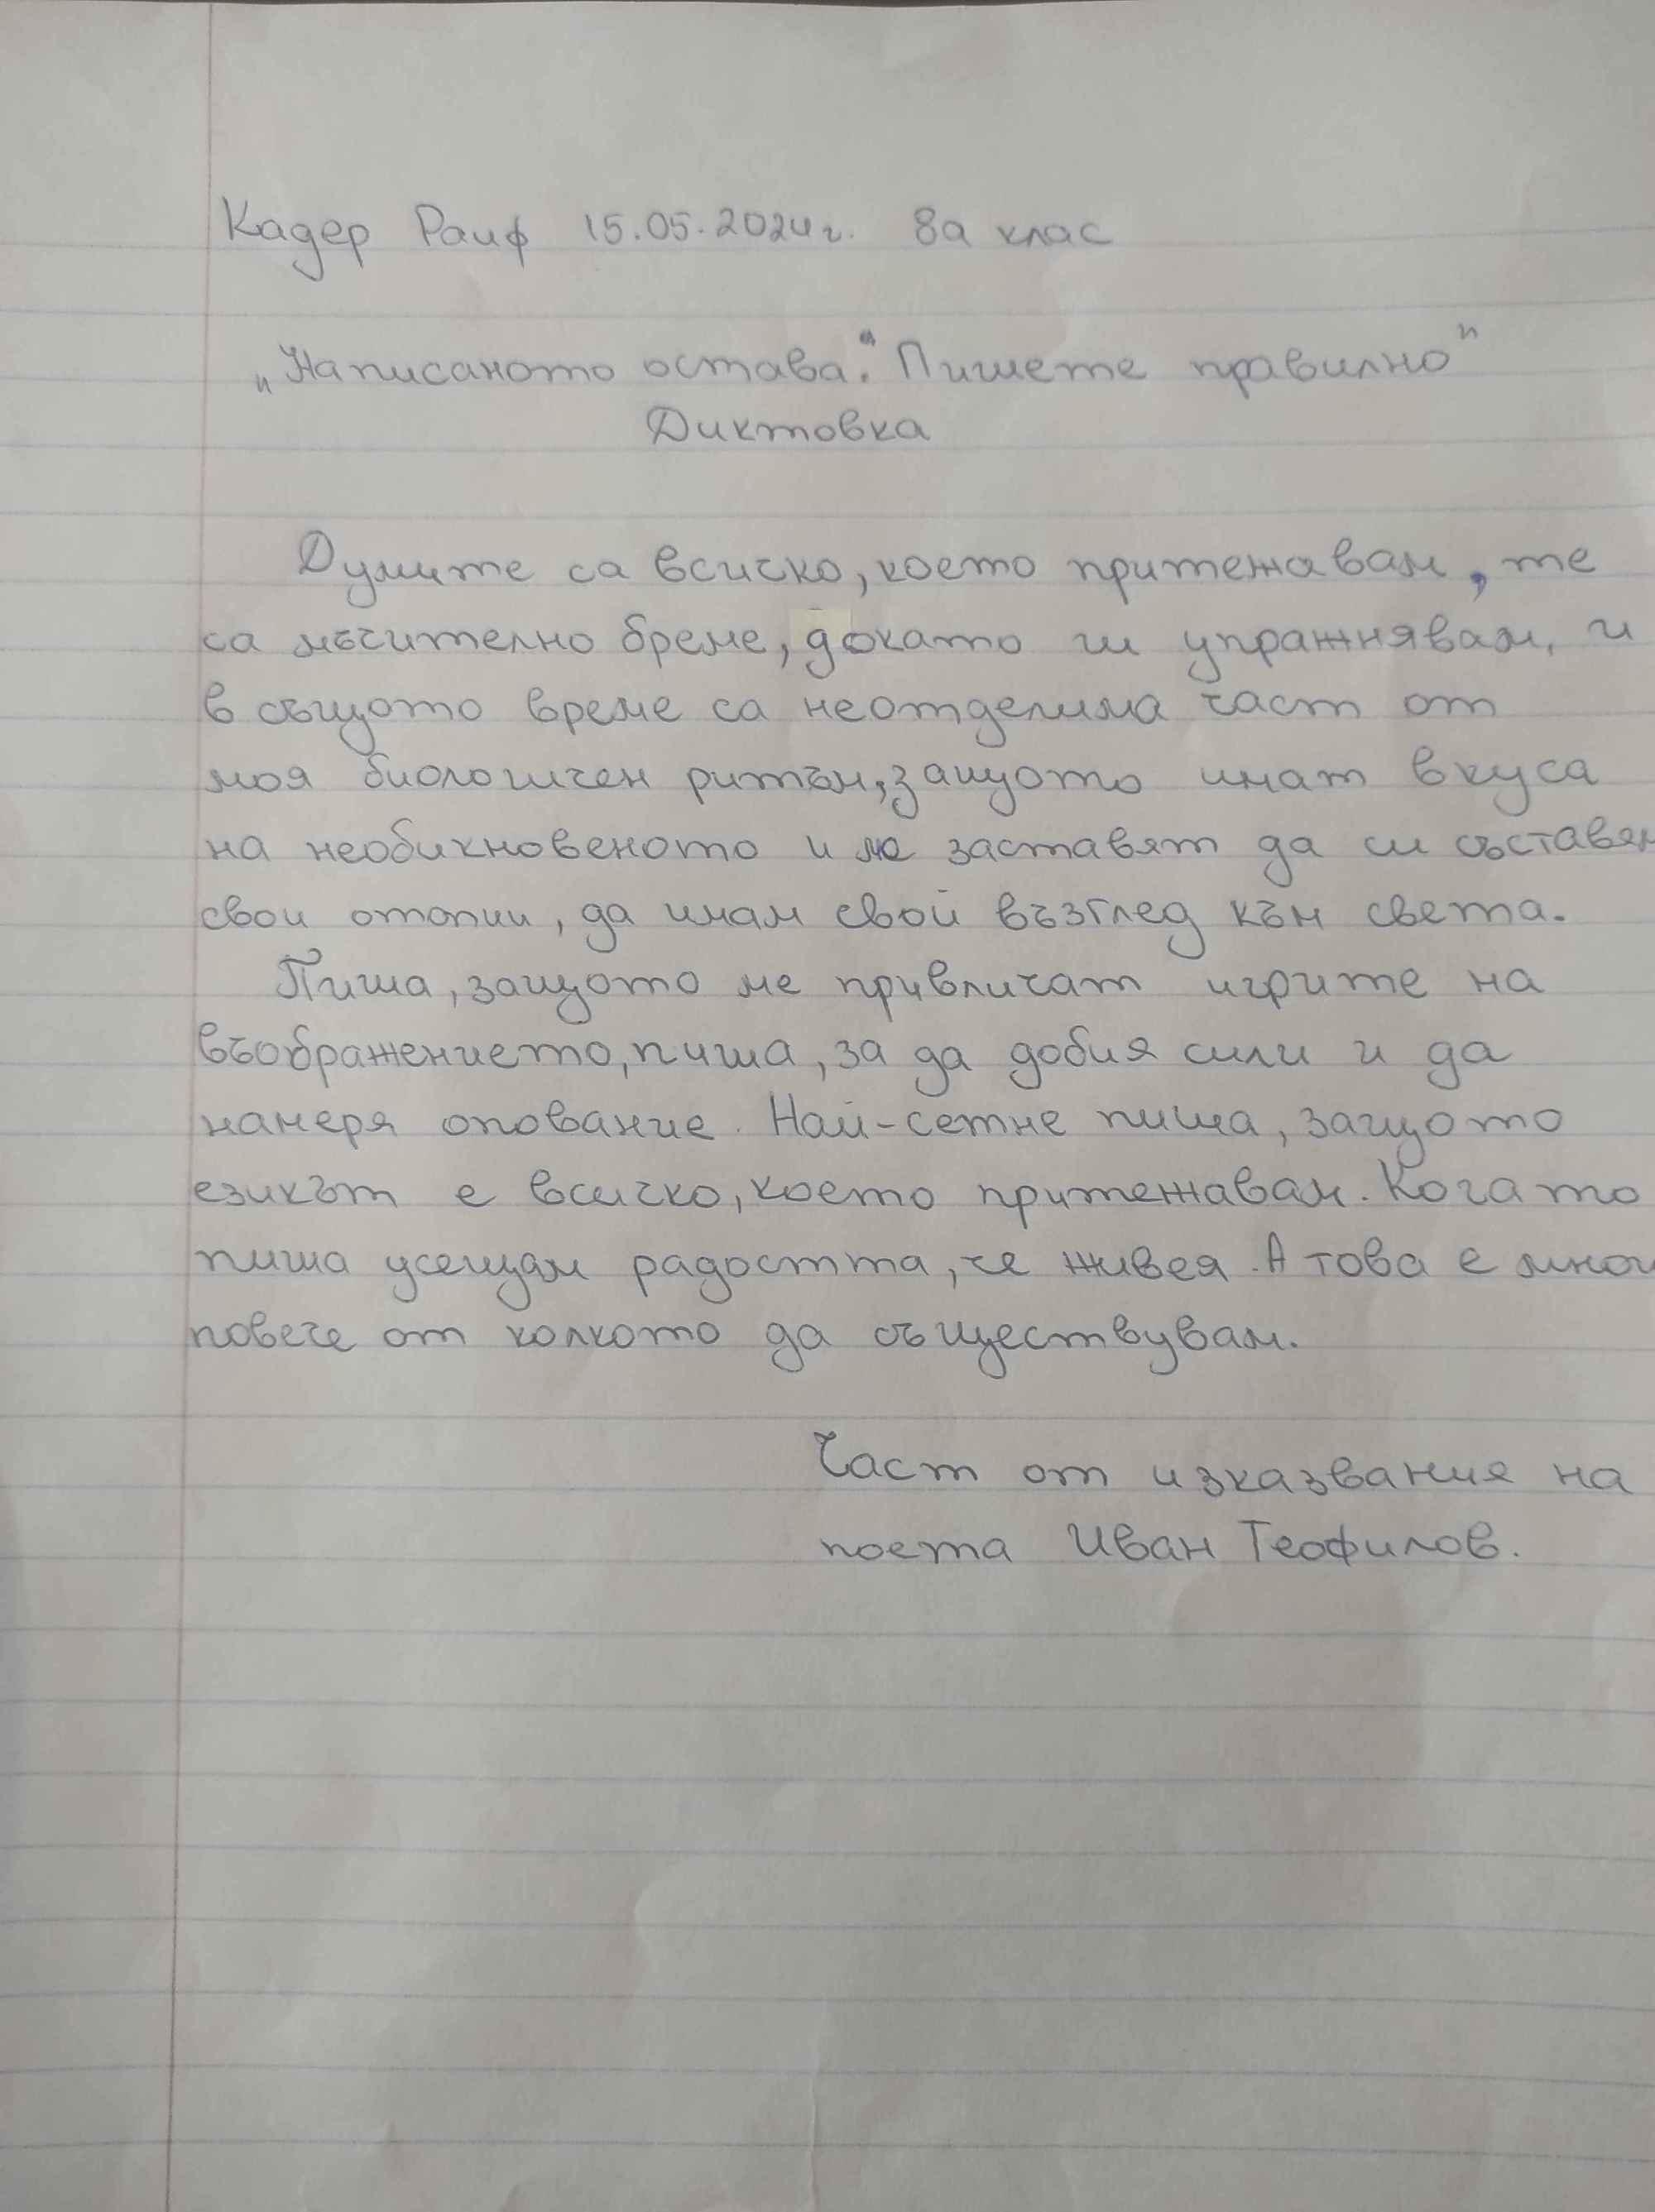 Кадер Раиф 15.05.2024г. 8а клас
„Написаното остава." Пишете правилно"
Диктовка
Думите са всичко, което притежавам, те
са мъчително бреме, докато ги упражнявам, и
в същото време са неотделима част от
моя биологичен ритъм, защото имат вкуса
на необикновеното и ме заставят да си съставям
свои отопии, да имам свой възглед към света.
Пиша, защото ме привличат игрите на
въображението, пиша, за да добия сили и да
намеря опование. Най-сетне пиша, защото
езикът е всичко, което притежавам. Когато
пиша усещам радостта, че живея. А това е мног
повече от колкото да съществувам.
Част от изказвания на
поета Иван Теофилов.